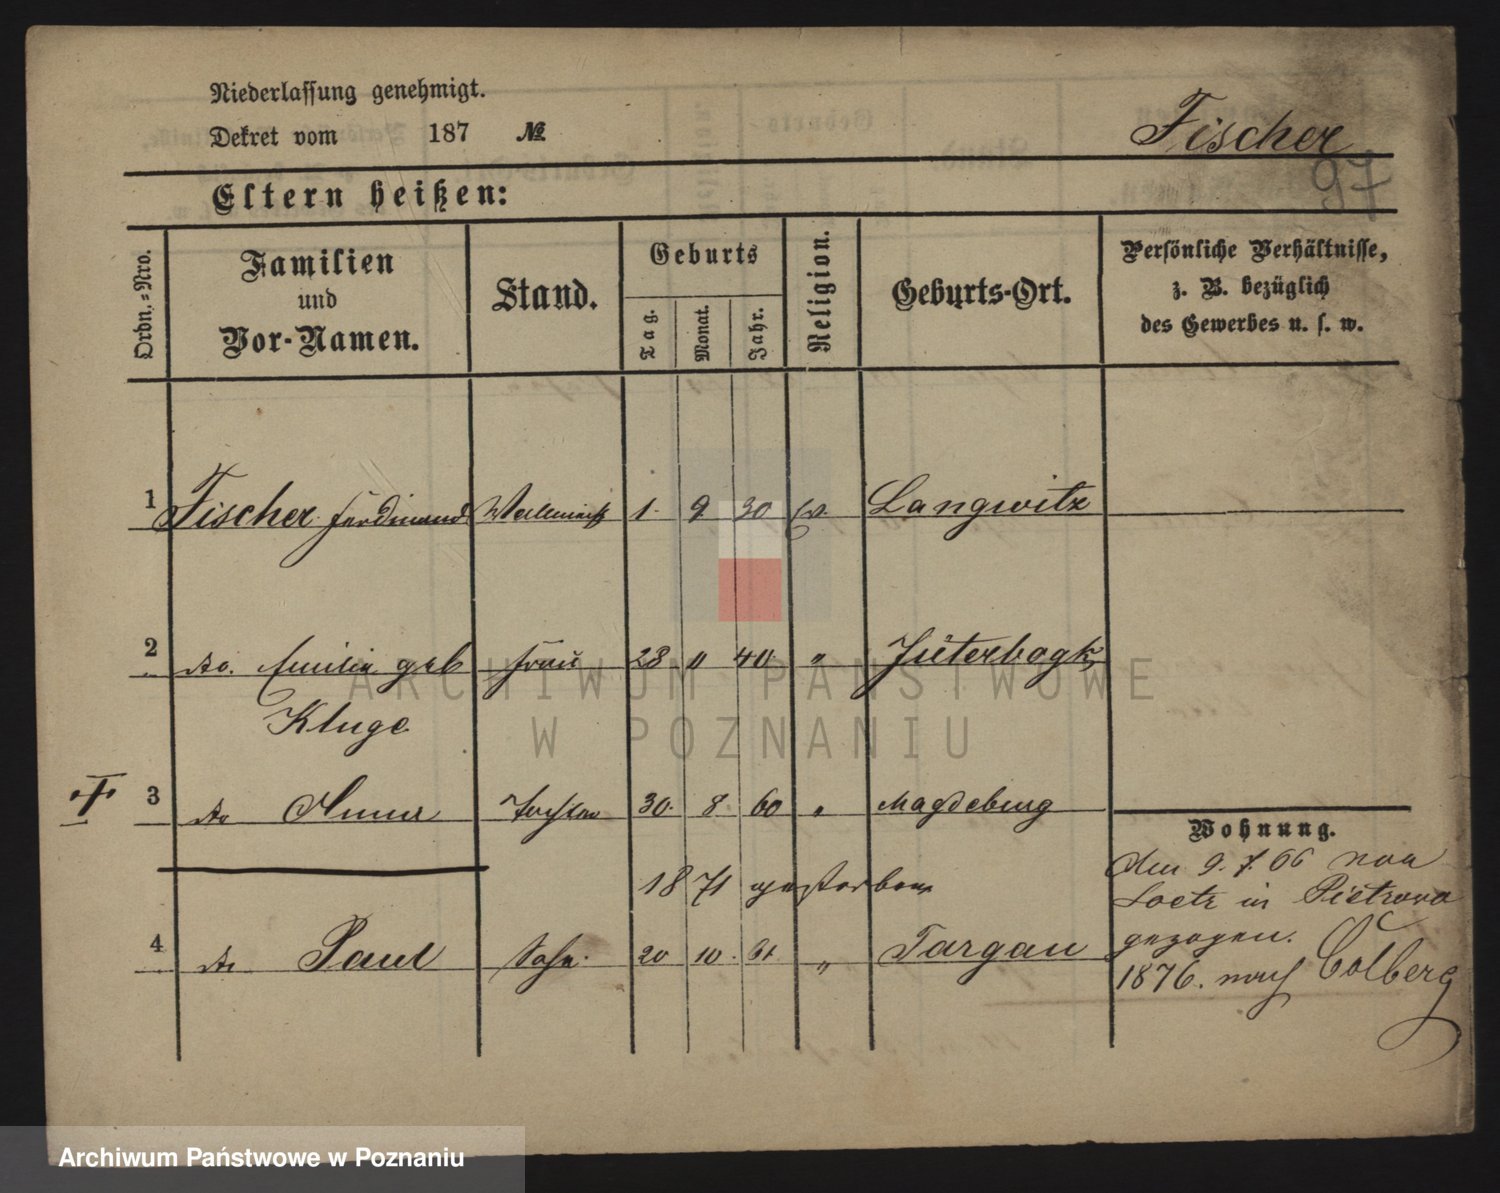 Niederlassung genehmigt.
Dekret vom 187 №
Fischer
97
Eltern heißen:
Ordn.-Nro.
Familien und Vor-Namen.
Stand.
Geburts
Tag.
Monat.
Jahr.
Religion.
Geburts-Ort.
Persönliche Verhältnisse,
z. B. bezüglich
des Gewerbes u. s. w.
1 Fischer Ferdinand 1. 9. 30 Ev. Langwitz
2 do. Emilie geb Frau 28 11 40 " Jüterbogk
Kluge
3 do Anna Tochter 30. 8. 60 " Magdeburg
Wohnung.
1871 gestorben
den 9. 7. 66 von
Loetz in Pietrowo
gezogen.
4 do Paul Sohn. 20 10. 61 " Targau
1876. nach Colberg
ARCHIWUM PAŃSTWOWE
W POZNANIU
Archiwum Państwowe w Poznaniu